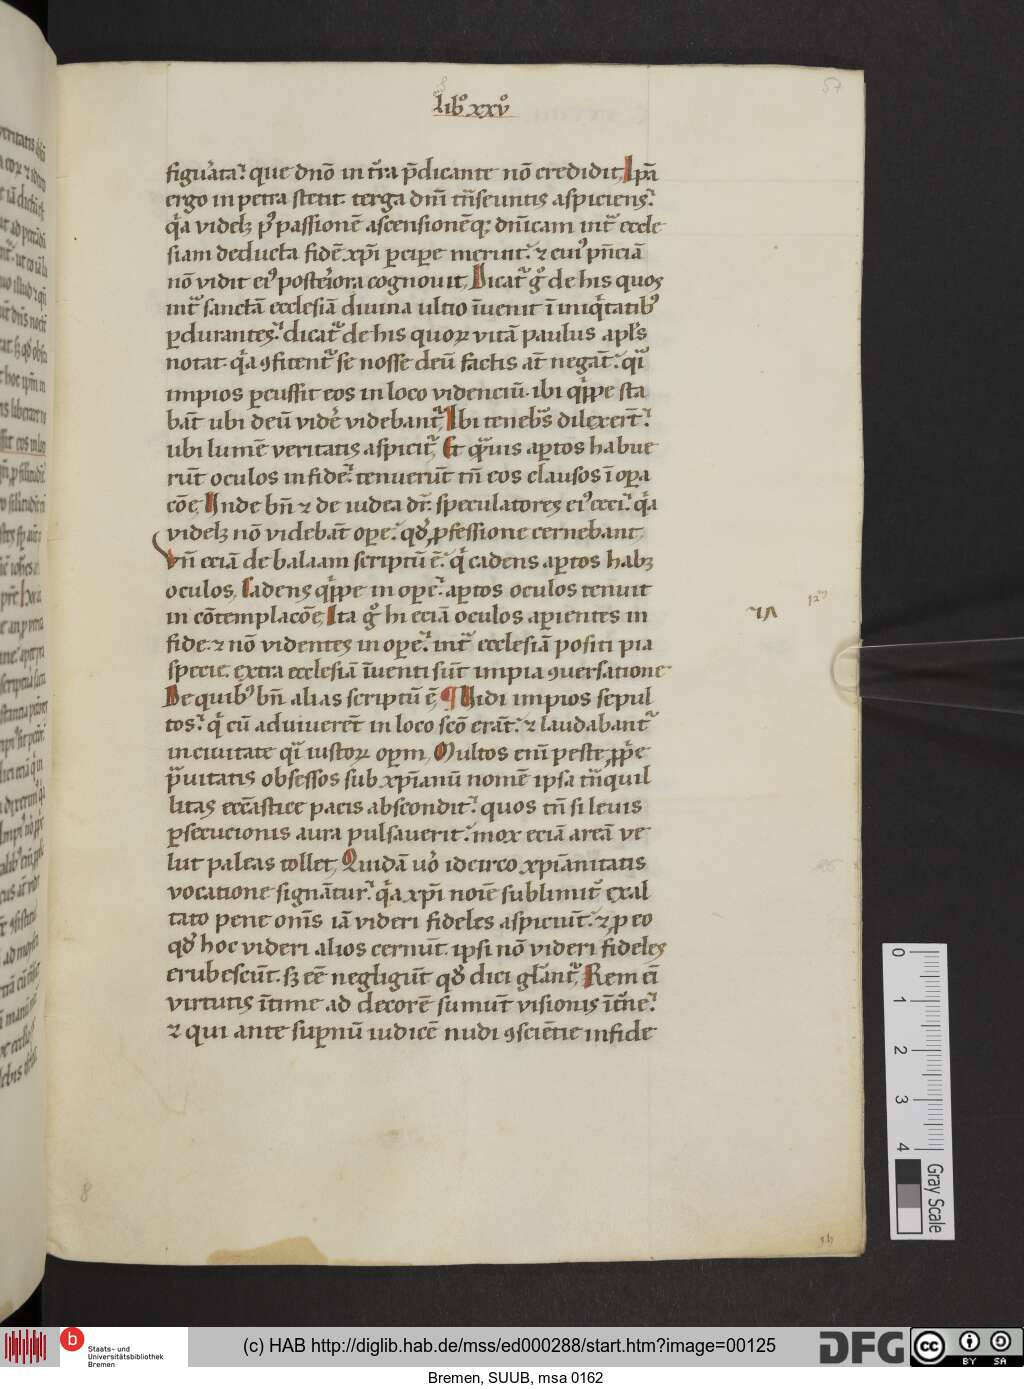 libº xxvº
57
figurata. que dnō in t̄ra p̄dicante nō credidit. Ipā
ergo in petra stetit. terga dnī tnseuntis aspiciens.
qa videlꝫ p⁹ passionē ascensionēq; dnīcam int̄ eccle
siam deducta fidē xp̄i ꝑcipe meruit. ⁊ cui⁹ pn̄ciā
nō vidit ei⁹ posteriora cognouit. Dicat̄ gͦ de his quos
int̄ sanctā ecclesiā diuina ultio īuenit ī iniqͥtatib⁹
ꝑdurantes. dicat̄ de his quoꝝ vitā paulus apl's
notat. qa ꝯfitent̄ se nosse deū factis at̄ negāt. qͥ
impios ꝑcussit eos in loco videnciū. ibi qͥppe sta
bāt ubi deū videͤ videbant̄. Ibi tenebs dilexert̄.
ubi lumē veritatis aspicit̄. Et qͣuis aꝑtos habue
rūt oculos in fide. tenuerūt tn̄ eos clausos ī oꝑa
cōe. Unde bn̄ ⁊ de iudea dr̄. speculatores ei⁹ ceci. qa
videlꝫ nō videbāt ope. qd ꝓfessione cernebant.
Vn̄ eciā de balaam scriptū ē. qͥ cadens aꝑtos habꝫ
oculos. Cadens qͥppe in ope. aꝑtos oculos tenuit
in cōtemplacōe. Ita gͦ hi eciā oculos aꝑientes in
fide. ⁊ nō videntes in ope. int̄ ecclesiā positi pia
specie. extra ecclesiā īuenti sūt impia ꝯuersatione.
De quib⁹ bn̄ alias scriptū ē. ¶ Uidi impios sepul
tos. qͥ cū adviuerēt in loco scō erāt. ⁊ laudabant̄
in ciuitate qͥ iustoꝝ opm. Multos enī peste ꝓpe
p̄uitatis obsessos sub xpianū nomē ipsa tn̄quil
litas ecc̄astice pacis abscondit. quos tn̄ si leuis
ꝑsecucionis aura pulsauerit. mox eciā areā ve
lut paleas tollet. Quidā uͦ idcirco xpianitatis
vocatione signāntur. qa xpi noīe sublimit̄ exal
tato pene om̄s iā videri fideles aspiciūt. ⁊ ꝓ eo
qd hoc videri alios cernūt. ipsi nō videri fideles
erubescūt. sꝫ eē negligūt qd dici glānt̄. Rem eī
virtutis ītime ad decorē sumūt visionis īt̄ne.
⁊ qui ante suꝑnū iudicē nudi ꝯsciētie infide
12m
8
0
1
2
3
4
Gray Scale
b
Staats- und
Universitätsbibliothek
Bremen
(c) HAB http://diglib.hab.de/mss/ed000288/start.htm?image=00125
DFG
cc
BY SA
Bremen, SUUB, msa 0162